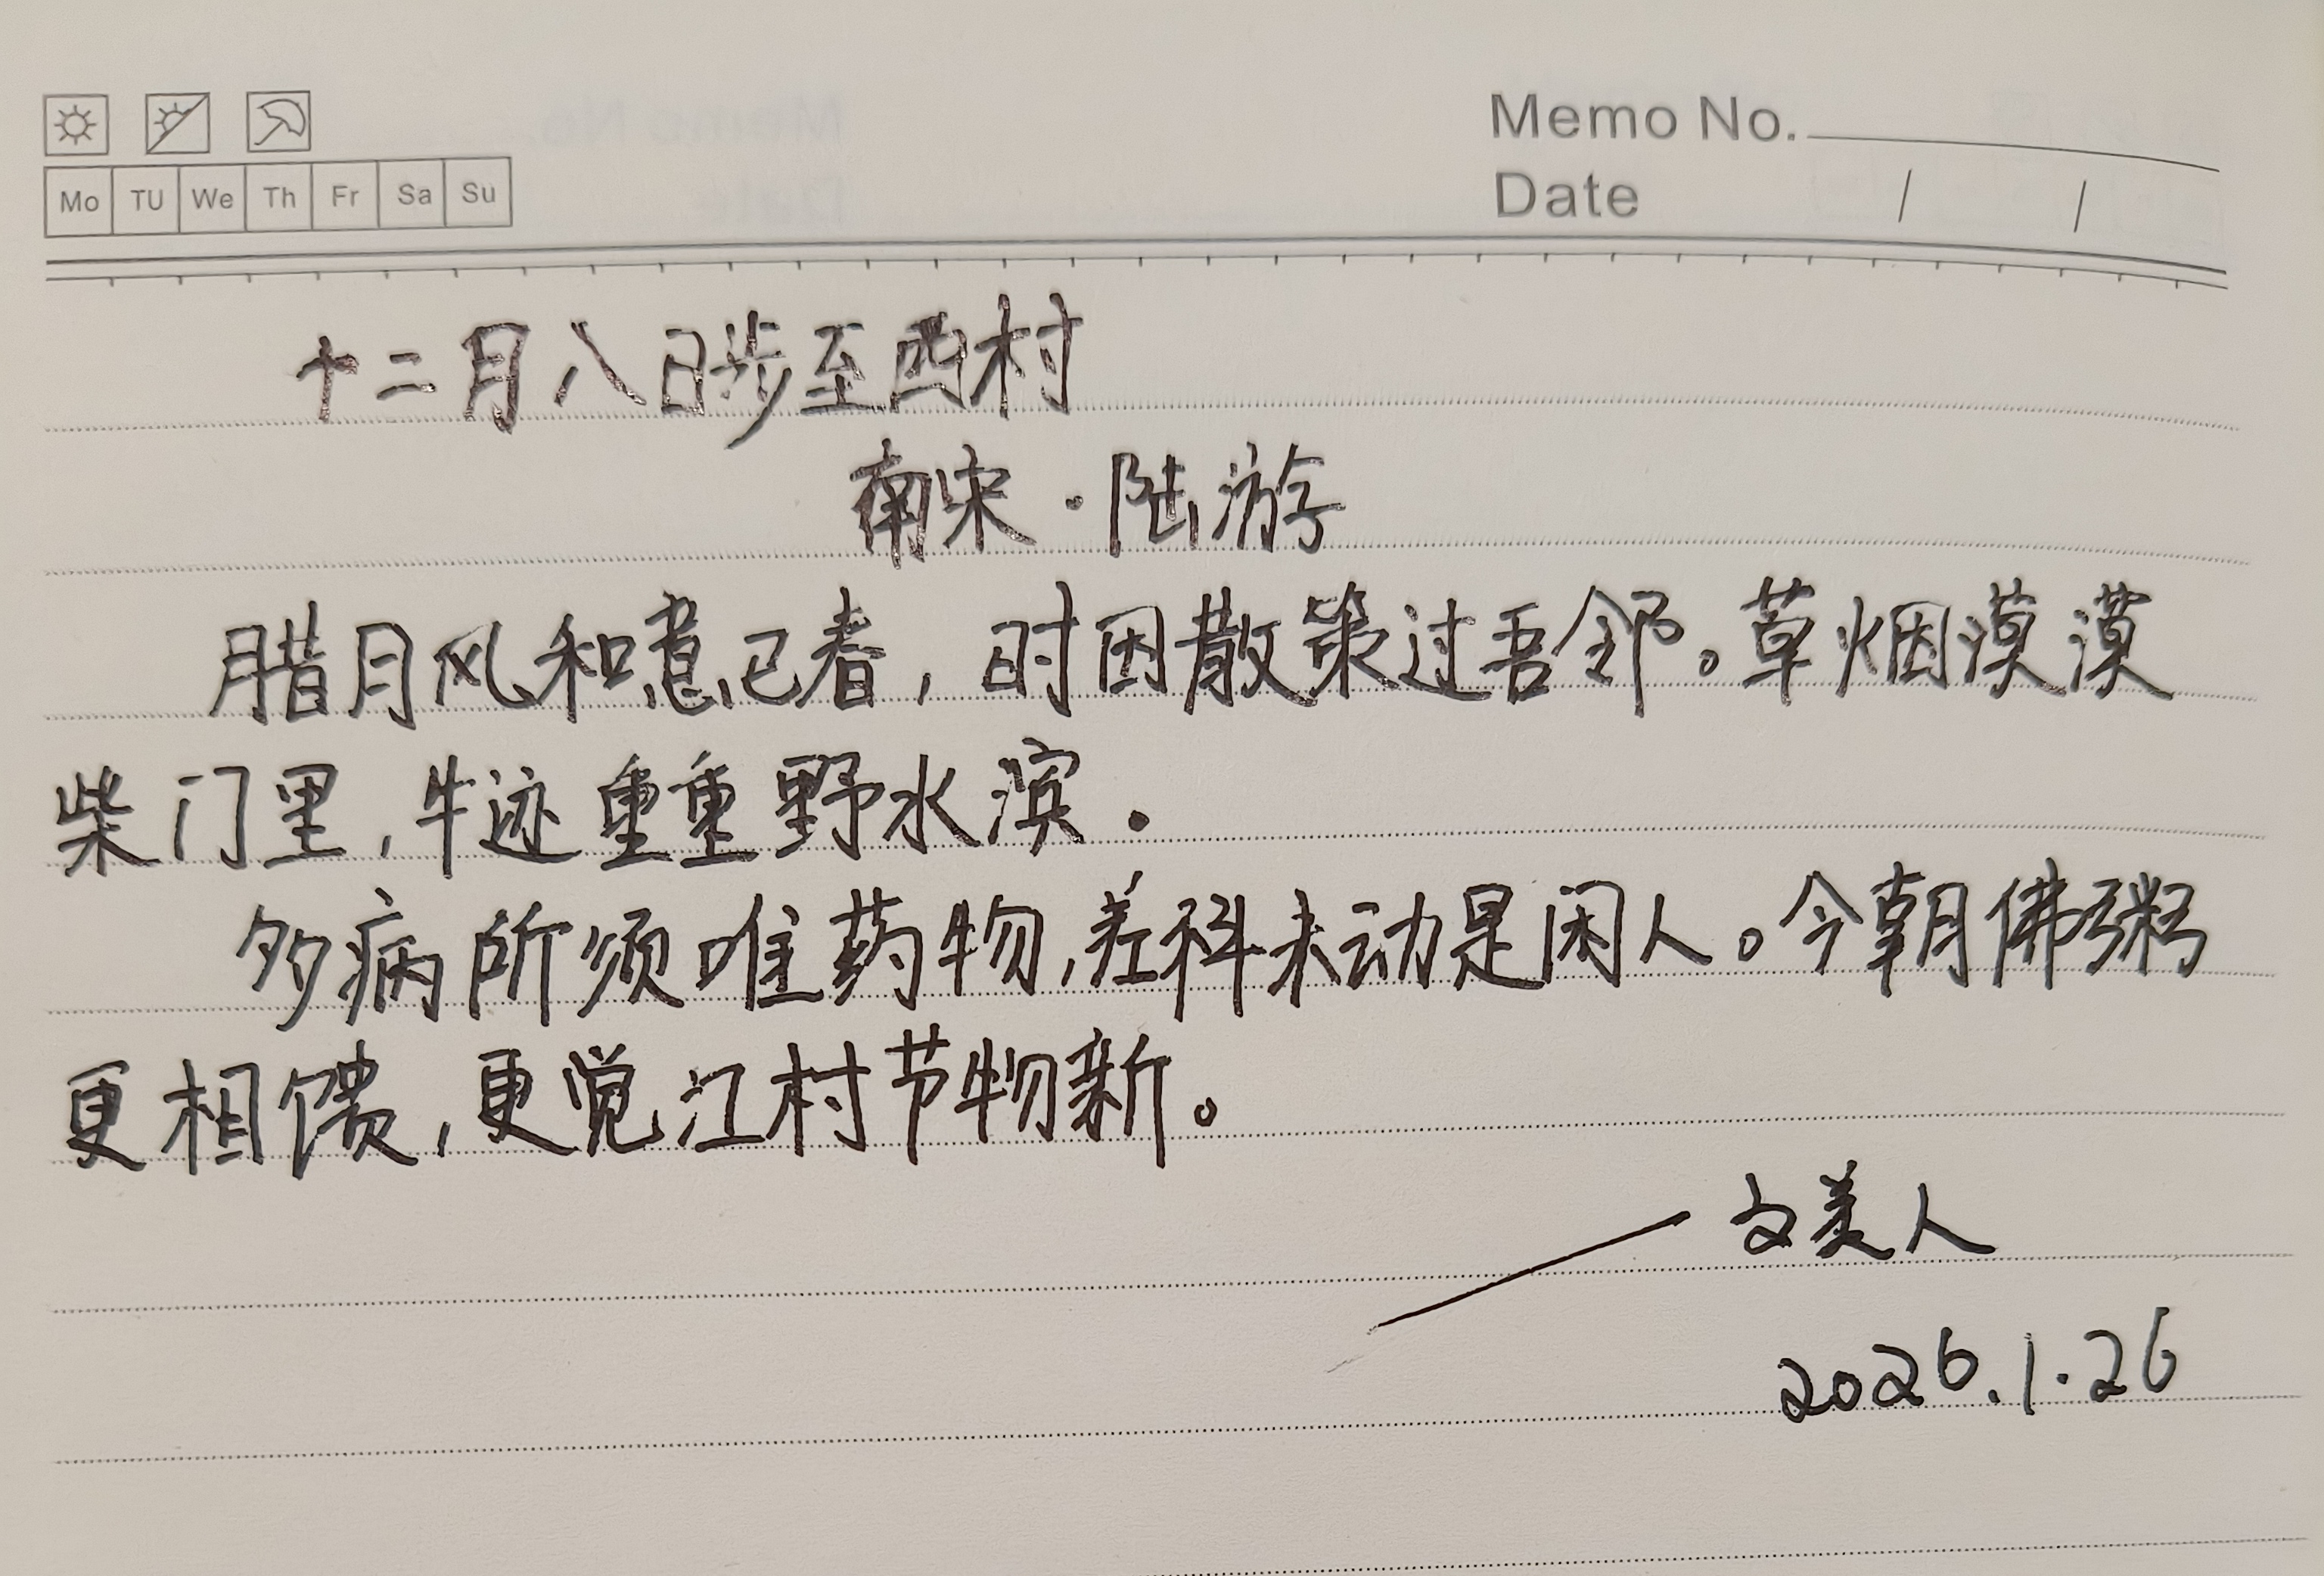 Memo No.
Mo TU We Th Fr Sa Su
Date / /
十二月八日步至西村
南宋·陆游
腊月风和意已春,时因散策过吾邻。草烟漠漠
柴门里,牛迹重重野水滨.
多病所须唯药物,差科未动是闲人。今朝佛粥
更相馈,更觉江村节物新。
文美人
2026.1.26